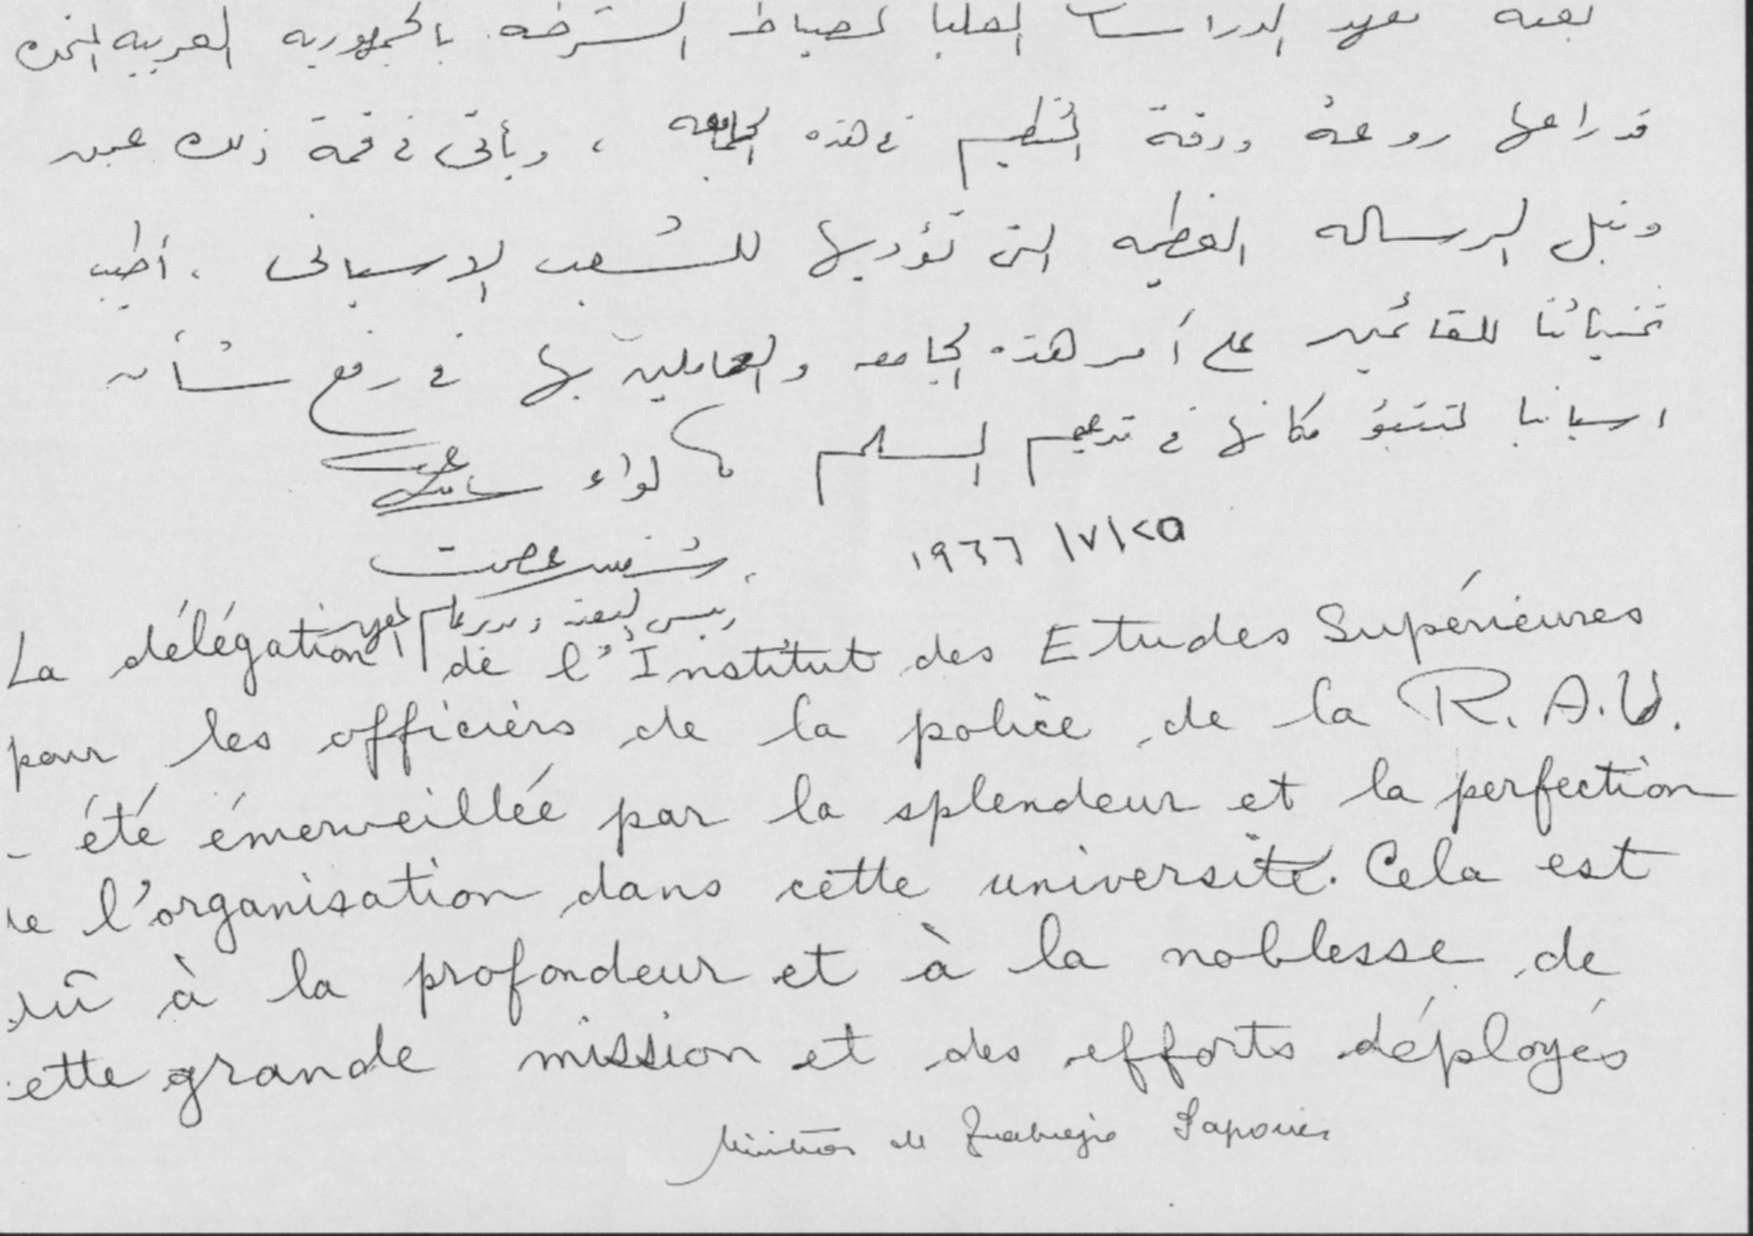 بعثة معهد الدراسات العليا لضباط الشرطه بالجمهوريه العربيه المتحده
قد راعها روعة ودقة التنظيم فى هذه الجامعه ، ويأتى فى قمة ذلك عمق
ونبل الرساله العظيمه التى تؤديها للشعب الاسبانى . أطيب
تمنياتنا للقائمين على أمر هذه الجامعه والعاملين بها فى رفع شأن
اسبانيا لتتبوّ مكانها فى تدعيم السلم لواء
١٩٦٦ /٧/٢٥
عصمت
رئيس البعثة ومدير عام
La délégation de l'Institut des Etudes Supérieures
pour les officiers de la police de la R.A.U.
été émerveillée par la splendeur et la perfection
l'organisation dans cette université. Cela est
à la profondeur et à la noblesse de
ette grande mission et des efforts déployés
de